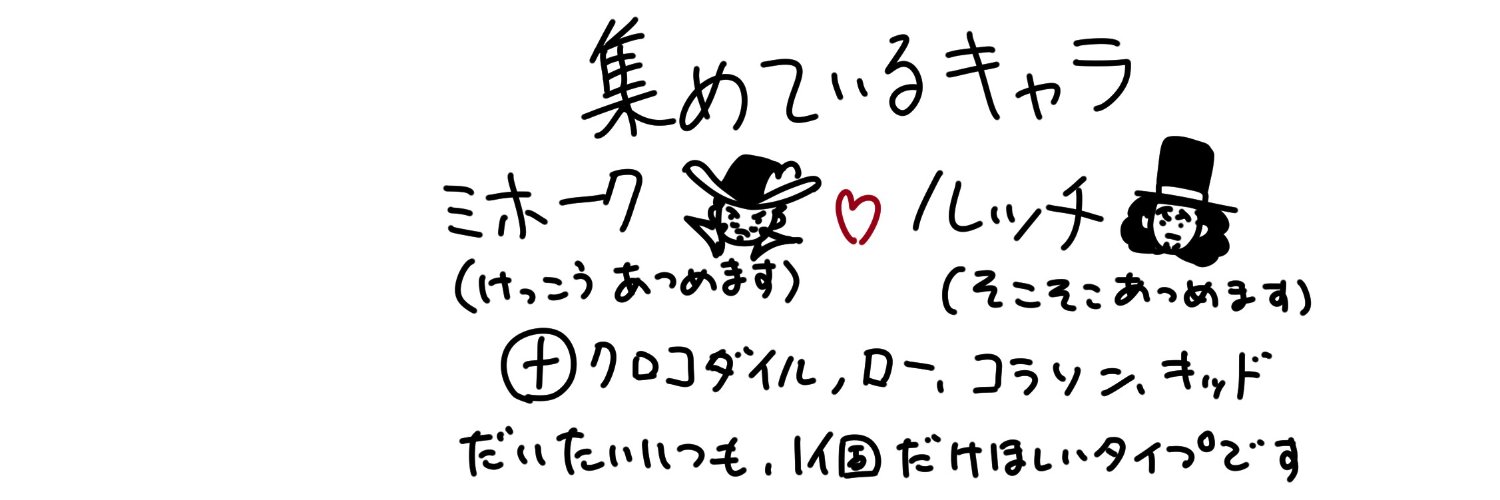 集めているキャラ
ミホーク ♡ ルッチ
(けっこうあつめます) (そこそこあつめます)
⊕クロコダイル,ロー、コラソン、キッド
だいたいいつも、1個だけほしいタイプです